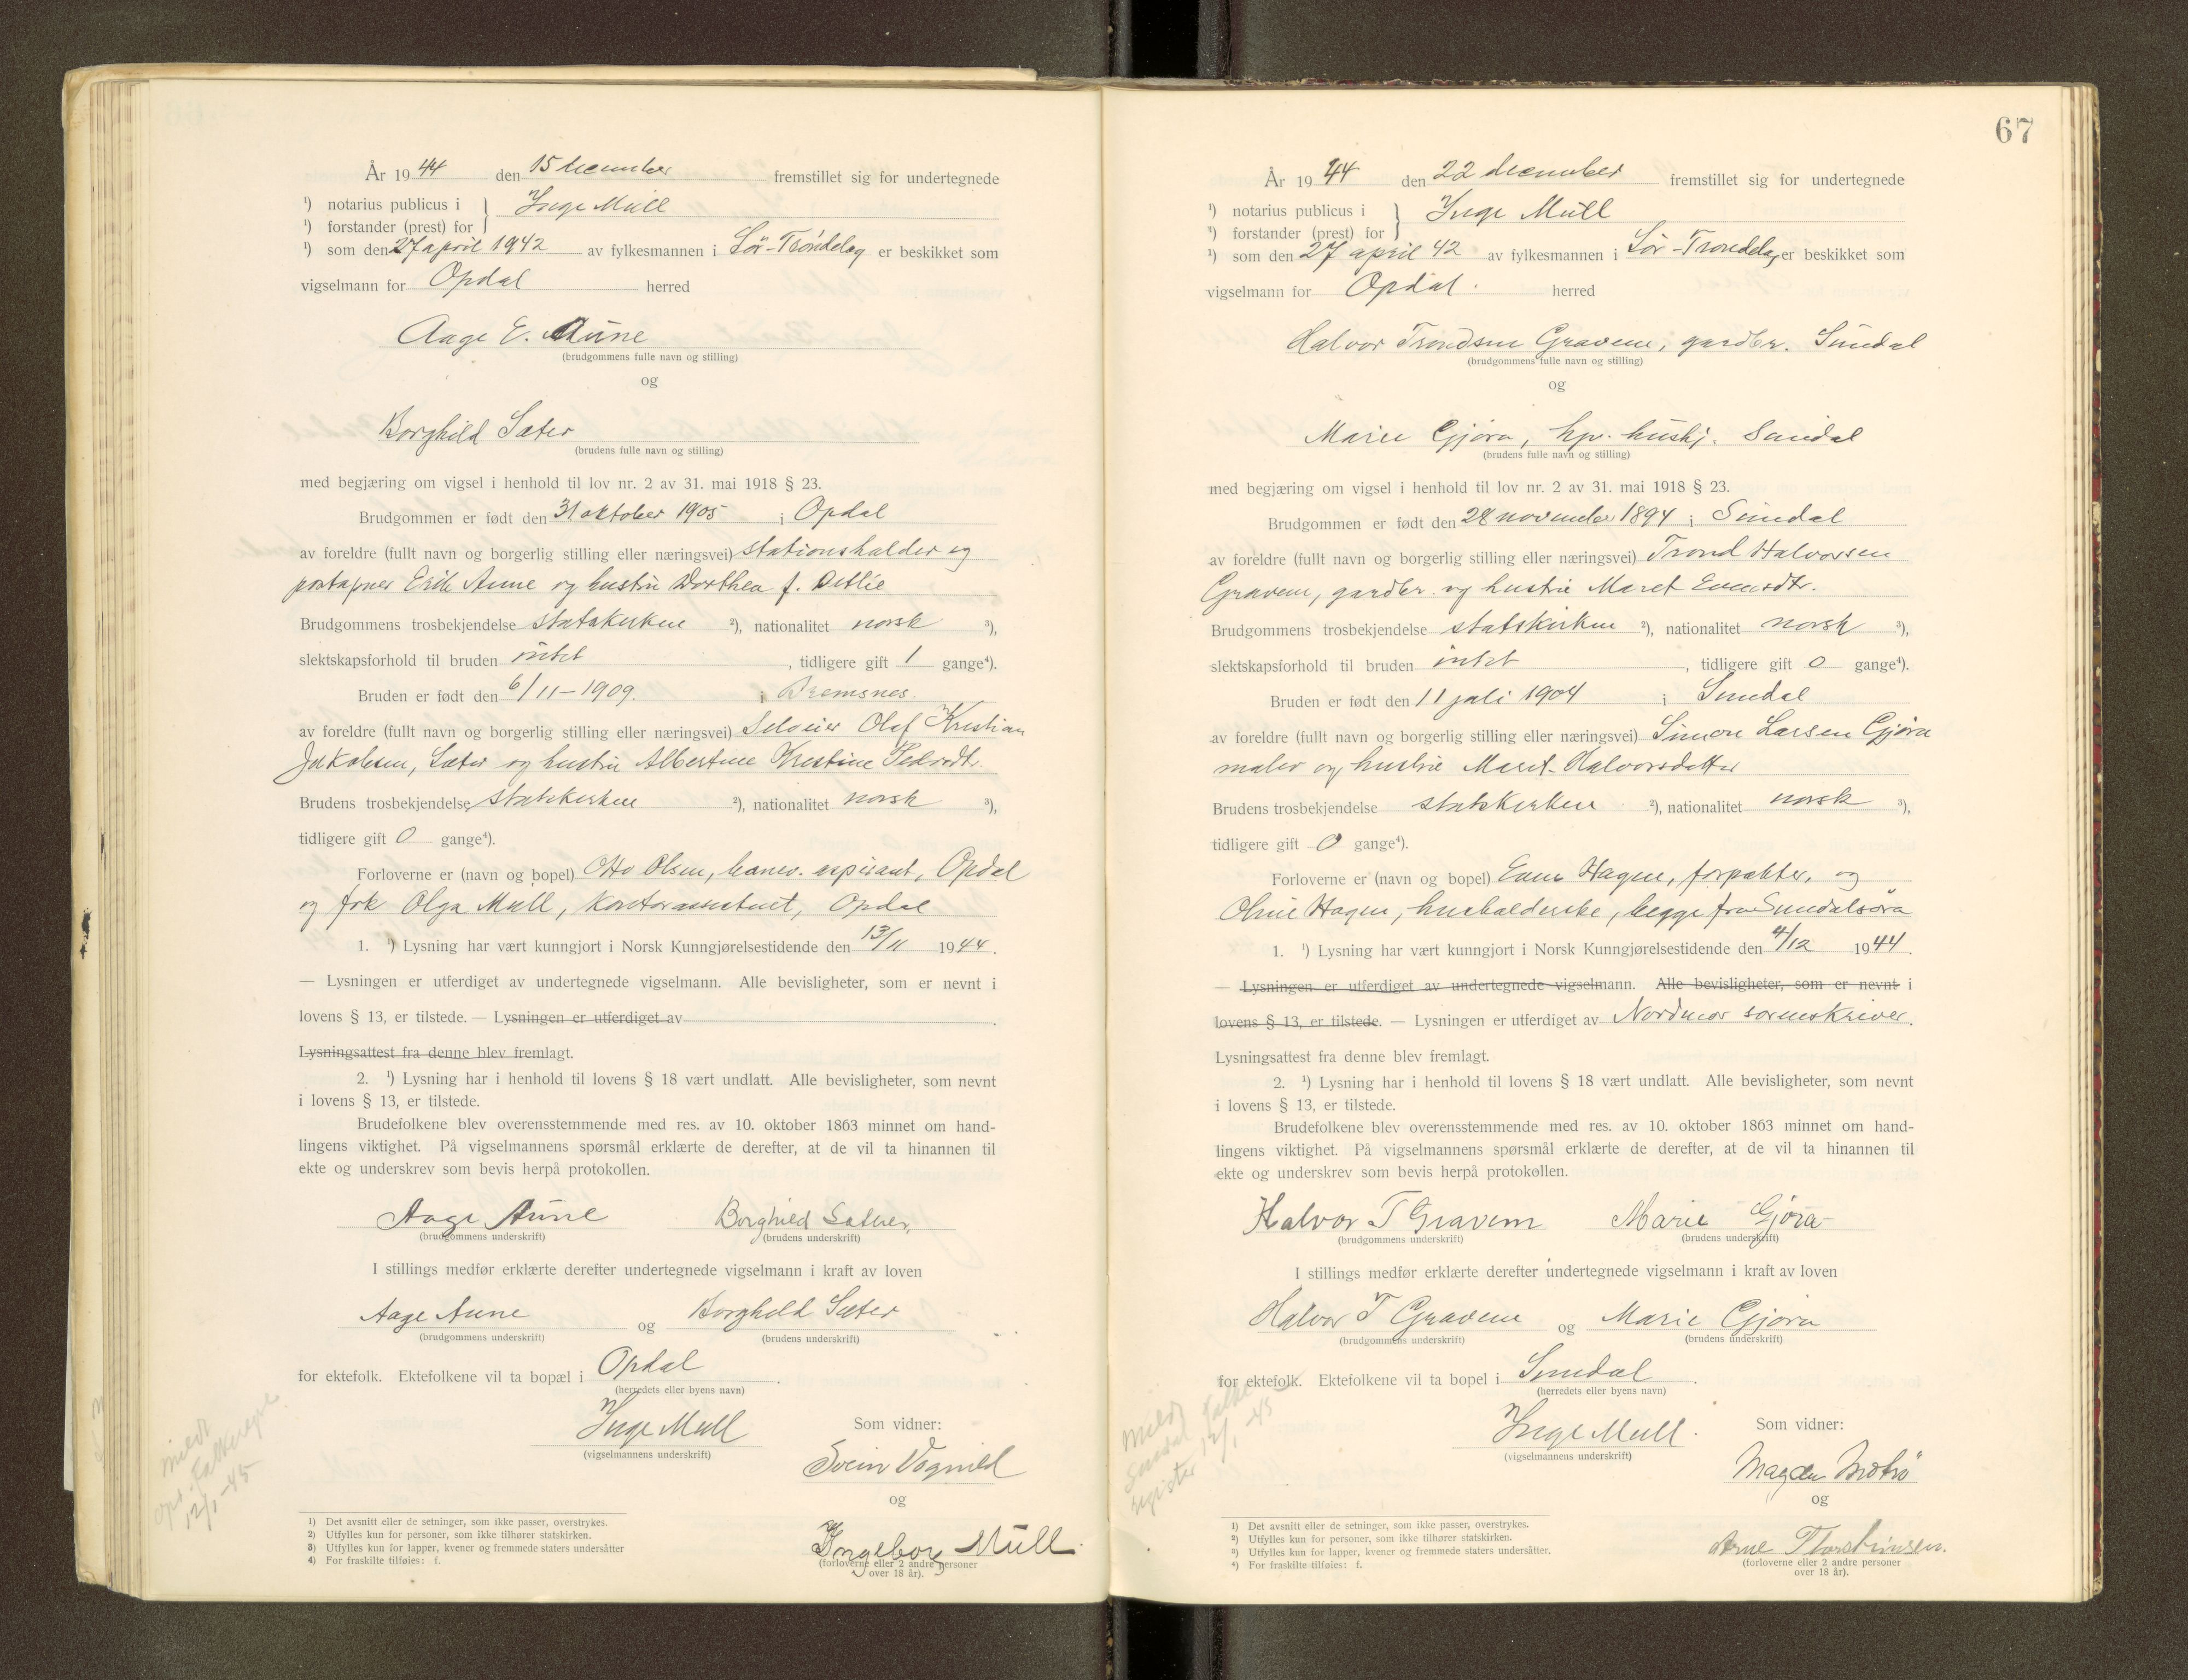 År 1944 den 15 december fremstillet sig for undertegnede
¹) notarius publicus i } Inge Mull
¹) forstander (prest) for
¹) som den 27 april 1942 av fylkesmannen i Sör-Tröndelag er beskikket som
vigselmann for Opdal herred
Aage E. Aune
(brudgommens fulle navn og stilling)
og
Borghild Sæter
(brudens fulle navn og stilling)
med begjæring om vigsel i henhold til lov nr. 2 av 31. mai 1918 § 23.
Brudgommen er født den 31 oktober 1905 i Opdal
av foreldre (fullt navn og borgerlig stilling eller næringsvei) stationsholder og
postapner Erik Aune og hustru Dorthea f. Detlie
Brudgommens trosbekjendelse statskirken ²), nationalitet norsk ³),
slektskapsforhold til bruden intet , tidligere gift 1 gange⁴).
Bruden er født den 6/11-1909. i Bremsnes.
av foreldre (fullt navn og borgerlig stilling eller næringsvei) Selveier Olaf Kristian
Jakobsen, Sæter og hustru Albertine Kristine Pedersdtr.
Brudens trosbekjendelse statskirken ²), nationalitet norsk ³),
tidligere gift 0 gange⁴).
Forloverne er (navn og bopel) Otto Olsen, banev. aspirant, Opdal
og frk Olga Mull, kontorassistent, Opdal
1. ¹) Lysning har vært kunngjort i Norsk Kunngjørelsestidende den 13/11 1944.
— Lysningen er utferdiget av undertegnede vigselmann. Alle bevisligheter, som er nevnt i
lovens § 13, er tilstede. — Lysningen er utferdiget av .
Lysningsattest fra denne blev fremlagt.
2. ¹) Lysning har i henhold til lovens § 18 vært undlatt. Alle bevisligheter, som nevnt
i lovens § 13, er tilstede.
Brudefolkene blev overensstemmende med res. av 10. oktober 1863 minnet om hand-
lingens viktighet. På vigselmannens spørsmål erklærte de derefter, at de vil ta hinannen til
ekte og underskrev som bevis herpå protokollen.
Aage Aune Borghild Sæther,
(brudgommens underskrift) (brudens underskrift)
I stillings medfør erklærte derefter undertegnede vigselmann i kraft av loven
Aage Aune og Borghild Sæter
(brudgommens underskrift) (brudens underskrift)
for ektefolk. Ektefolkene vil ta bopæl i Opdal .
(herredets eller byens navn)
Inge Mull Som vidner:
(vigselmannens underskrift)
Svein Vognild
og
Ingeborg Mull.
(forloverne eller 2 andre personer
over 18 år).
meldt
opd. folkeregist
12/1-45
1) Det avsnitt eller de setninger, som ikke passer, overstrykes.
2) Utfylles kun for personer, som ikke tilhører statskirken.
3) Utfylles kun for lapper, kvener og fremmede staters undersåtter
4) For fraskilte tilføies: f.
67
År 1944 den 22 december fremstillet sig for undertegnede
¹) notarius publicus i } Inge Mull
¹) forstander (prest) for
¹) som den 27 april 42 av fylkesmannen i Sör-Tröndelag er beskikket som
vigselmann for Opdal. herred
Halvor Trondsen Gravem, gardbr. Sundal
(brudgommens fulle navn og stilling)
og
Marie Gjöra, hp. hushj. Sundal
(brudens fulle navn og stilling)
med begjæring om vigsel i henhold til lov nr. 2 av 31. mai 1918 § 23.
Brudgommen er født den 28 november 1894 i Sundal
av foreldre (fullt navn og borgerlig stilling eller næringsvei) Trond Halvorsen
Gravem, gardbr. og hustru Maret Evensdtr.
Brudgommens trosbekjendelse statskirken ²), nationalitet norsk ³),
slektskapsforhold til bruden intet , tidligere gift 0 gange⁴).
Bruden er født den 11 juli 1904 i Sundal
av foreldre (fullt navn og borgerlig stilling eller næringsvei) Simon Larsen Gjöra
maler og hustru Marit Halvorsdatter
Brudens trosbekjendelse statskirken ²), nationalitet norsk ³),
tidligere gift 0 gange⁴).
Forloverne er (navn og bopel) Even Hagen, forpakter, og
Oline Hagen, husholderske, begge fra Sundalsöra
1. ¹) Lysning har vært kunngjort i Norsk Kunngjørelsestidende den 4/12 1944.
— Lysningen er utferdiget av undertegnede vigselmann. Alle bevisligheter, som er nevnt i
lovens § 13, er tilstede. — Lysningen er utferdiget av Nordmör sorenskriver.
Lysningsattest fra denne blev fremlagt.
2. ¹) Lysning har i henhold til lovens § 18 vært undlatt. Alle bevisligheter, som nevnt
i lovens § 13, er tilstede.
Brudefolkene blev overensstemmende med res. av 10. oktober 1863 minnet om hand-
lingens viktighet. På vigselmannens spørsmål erklærte de derefter, at de vil ta hinannen til
ekte og underskrev som bevis herpå protokollen.
Halvor T Gravem Marie Gjøra
(brudgommens underskrift) (brudens underskrift)
I stillings medfør erklærte derefter undertegnede vigselmann i kraft av loven
Halvor T Gravem og Marie Gjöra
(brudgommens underskrift) (brudens underskrift)
for ektefolk. Ektefolkene vil ta bopel i Sundal .
(herredets eller byens navn)
Inge Mull. Som vidner:
(vigselmannens underskrift)
Magda
og
Arne Thorstensen.
(forloverne eller 2 andre personer
over 18 år).
Meldt
Sundal folke
register 12/1-45
1) Det avsnitt eller de setninger, som ikke passer, overstrykes.
²) Utfylles kun for personer, som ikke tilhører statskirken.
³) Utfylles kun for lapper, kvener og fremmede staters undersåtter.
⁴) For fraskilte tilføies: f.